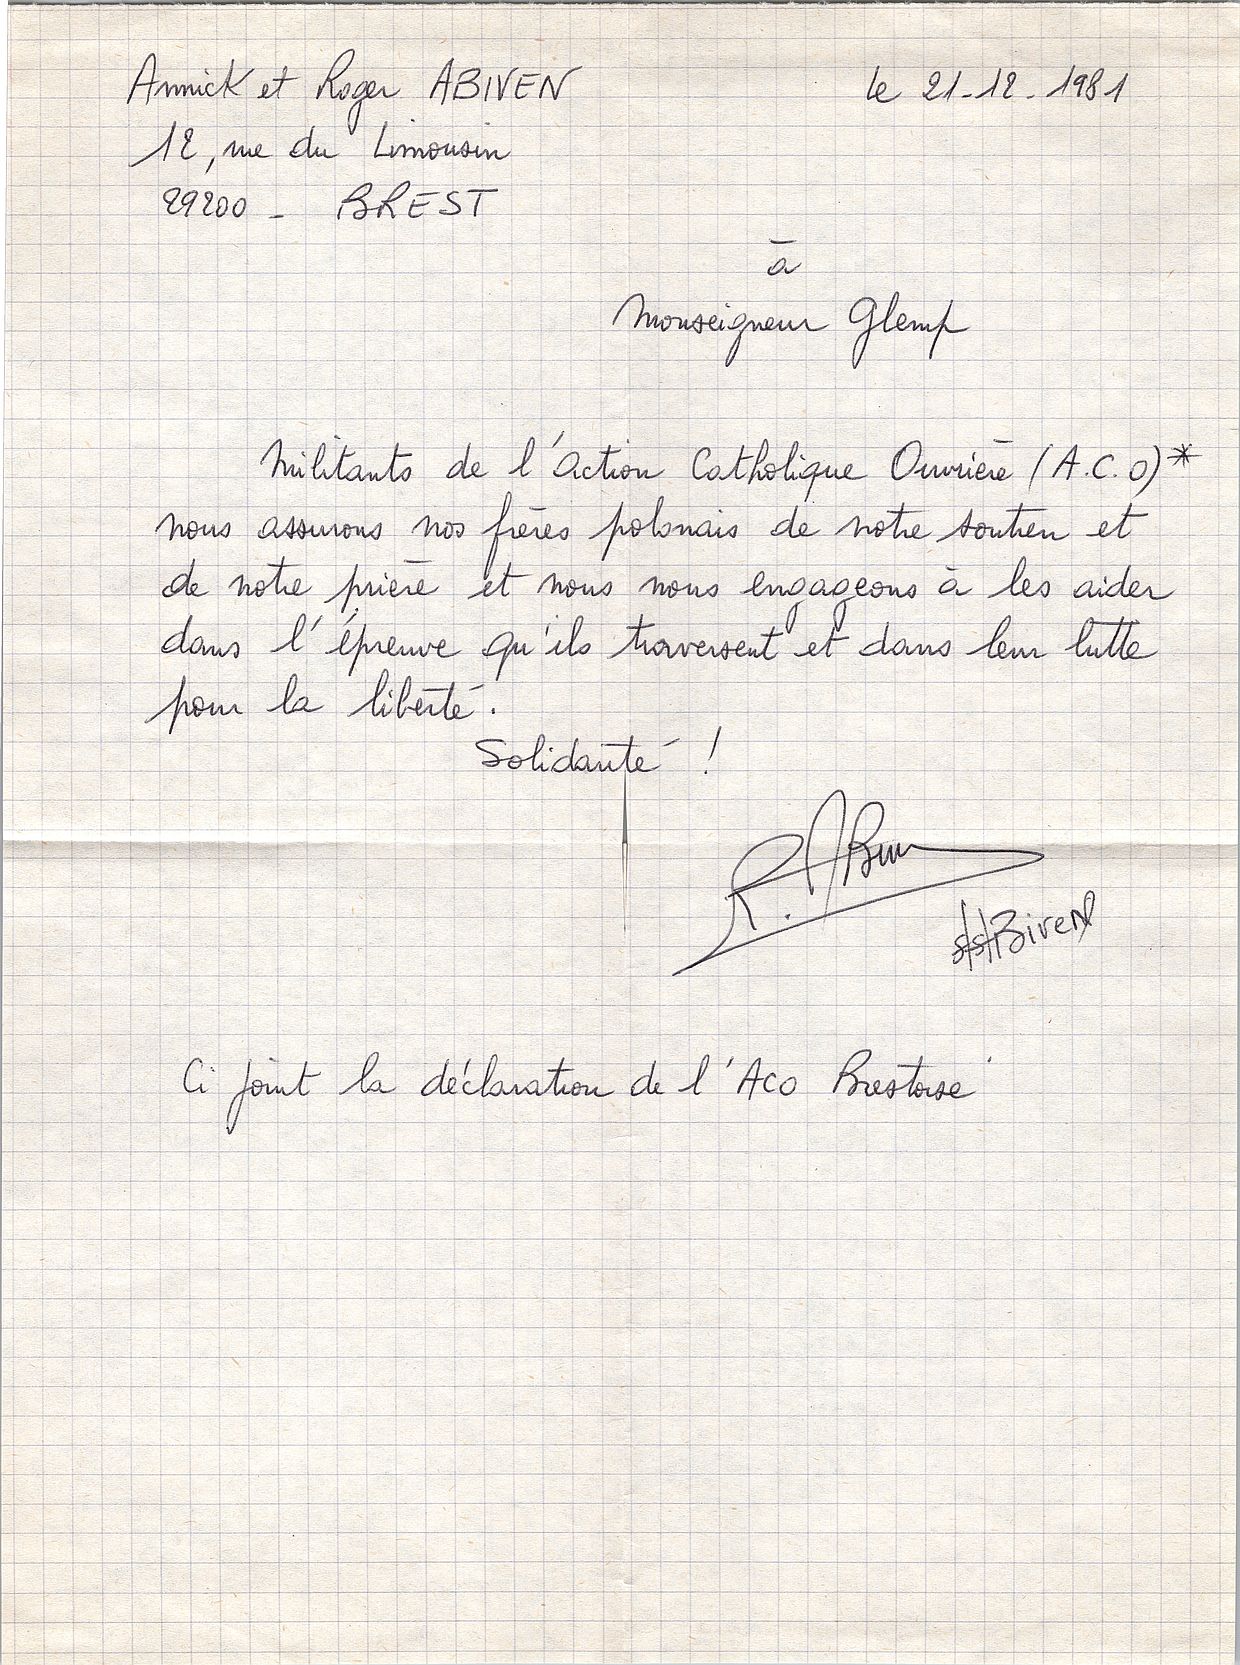 Annick et Roger ABIVEN
le 21-12-1981
12, rue du Limousin
29200 - BREST
à
Monseigneur Glemp
Militants de l'Action Catholique Ouvrière (A.C.O)*
nous assurons nos frères polonais de notre soutien et
de notre prière et nous nous engageons à les aider
dans l'épreuve qu'ils traversent et dans leur lutte
pour la liberté.
Solidarité !
R. ABiven
Biven
Ci joint la déclaration de l'ACO Brestoise